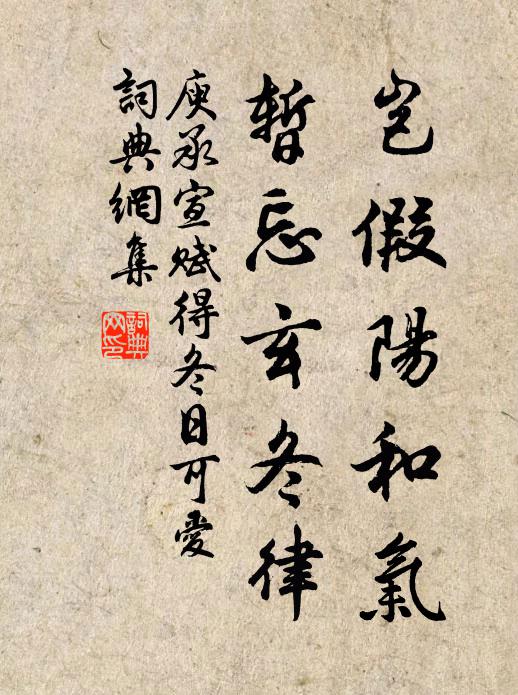 豈假陽和氣
暫忘玄冬律
庾承宣賦得冬日可愛
詞典網集
詞典
网印